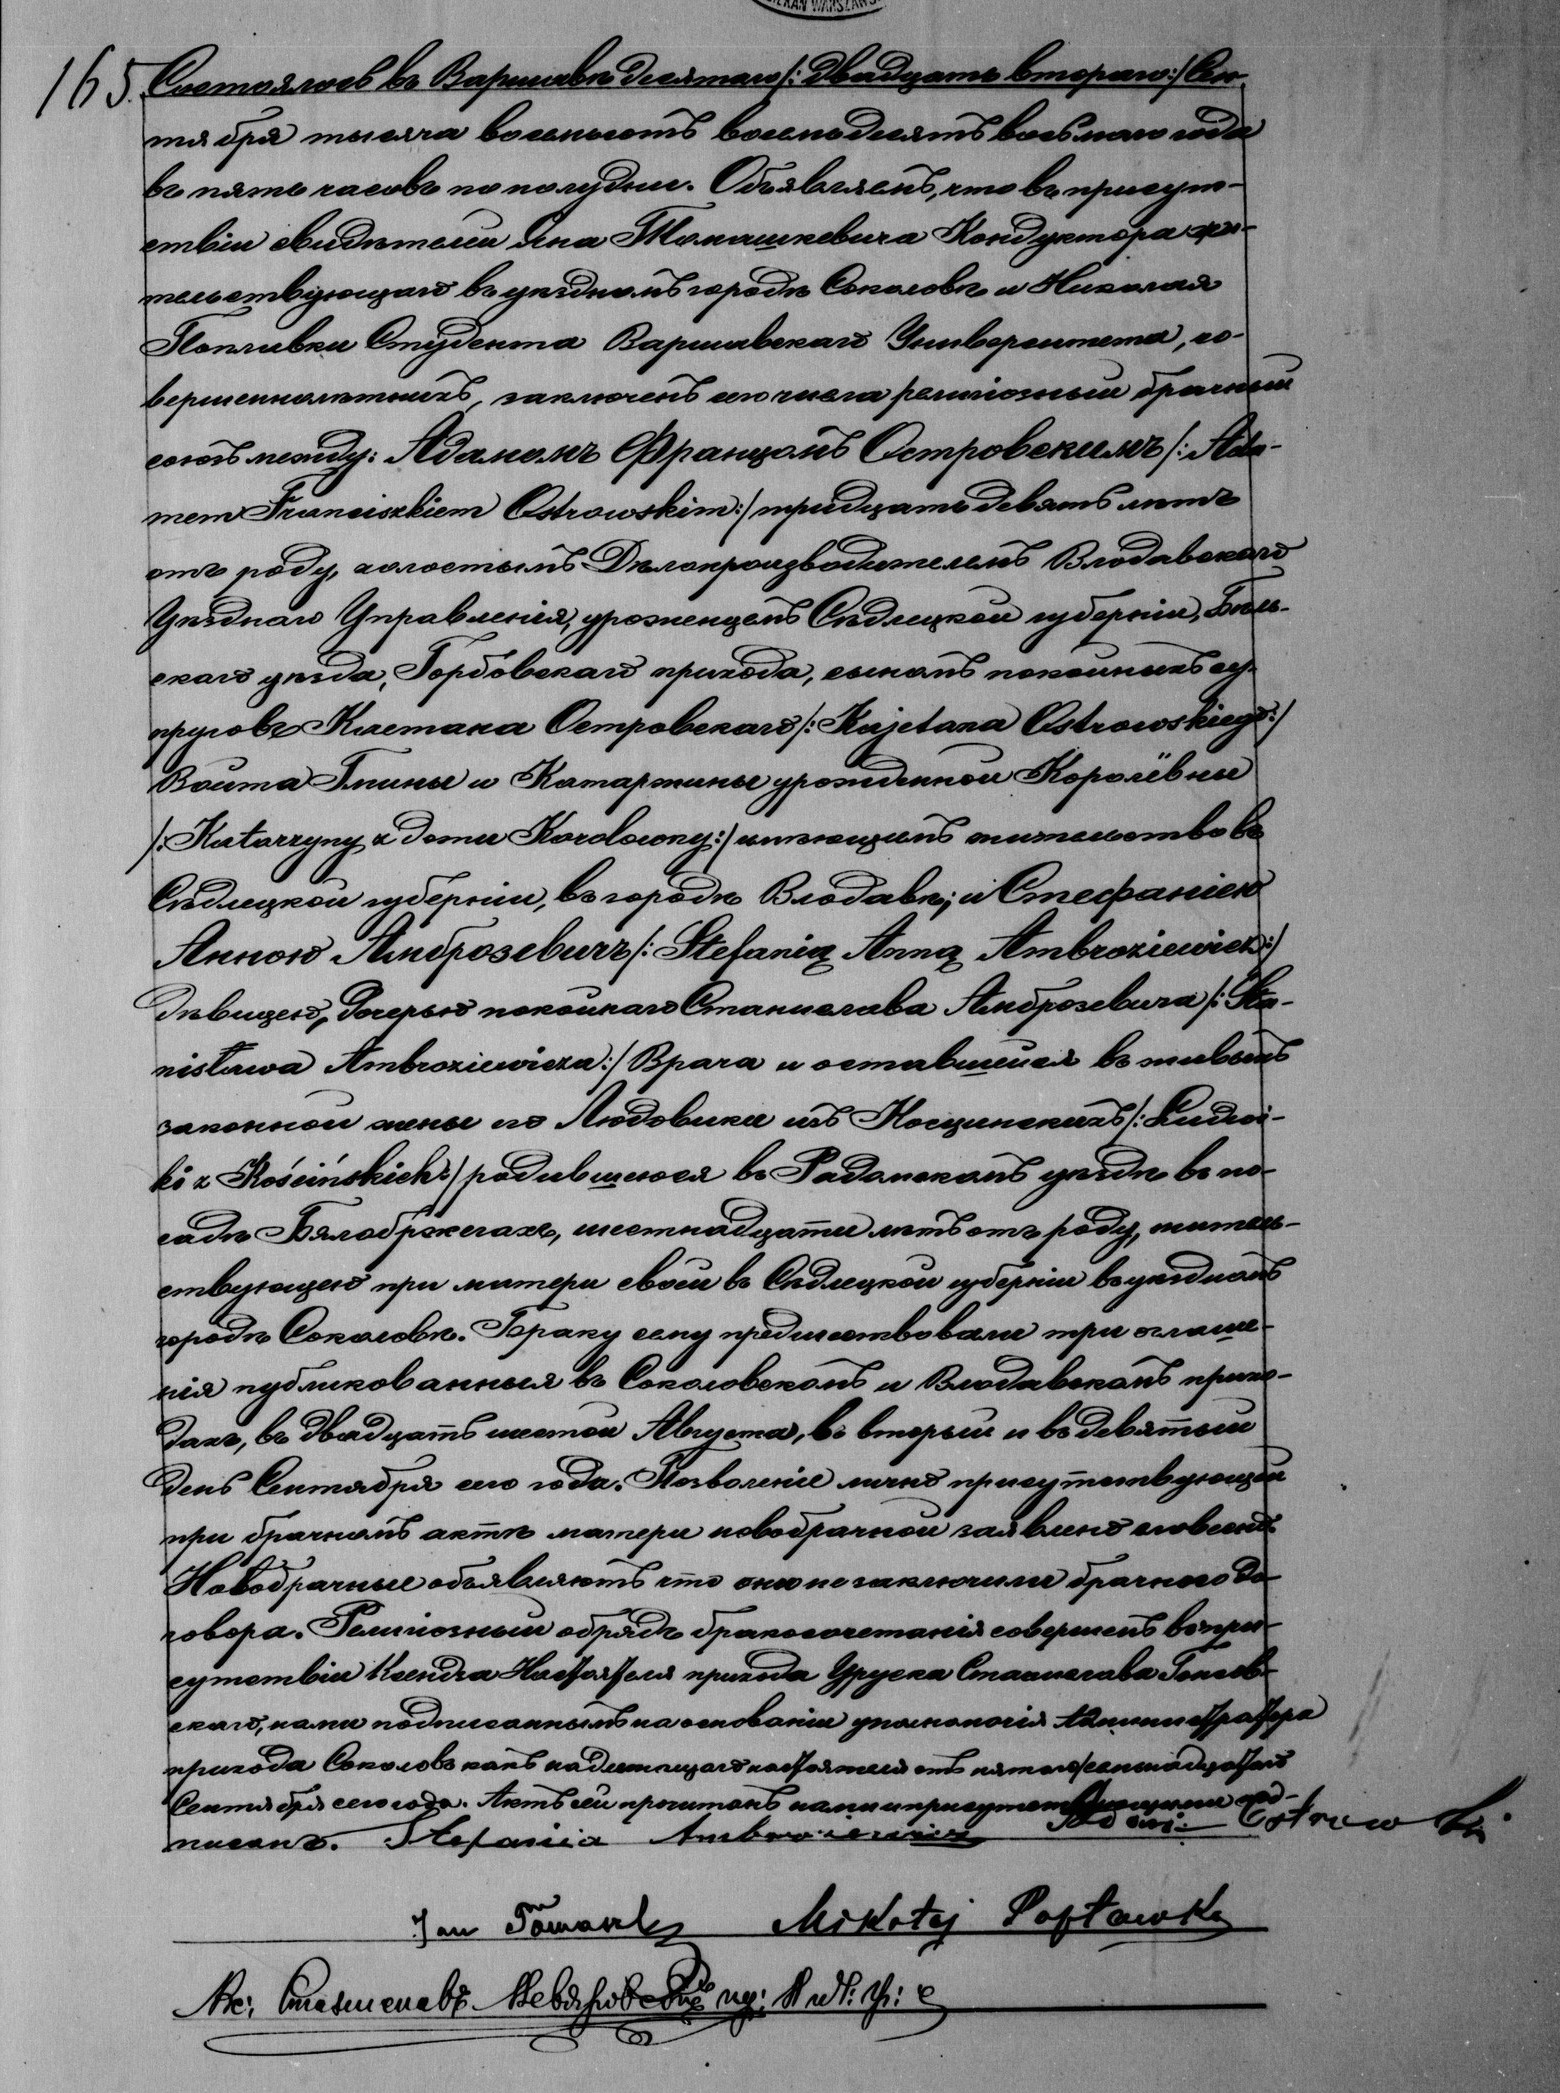 165. Состоялось въ Варшавѣ десятаго /: двадцать втораго :/ Сен-
тября тысяча восемьсотъ восемьдесятъ восьмаго года
въ пять часовъ по полудни. Объявляемъ, что въ присут-
ствіи свидѣтелей Яна Томашкевича Кондуктора жи-
тельствующаго въ уѣздномъ городѣ Соколовѣ и Николая
Поплавки Студента Варшавскаго Университета, со-
вершеннолѣтнихъ, заключенъ сего числа религіозный брачный
союзъ между: Адамомъ Францомъ Островскимъ /: Ada-
mem Franciszkiem Ostrowskim :/ тридцать девять лѣтъ
отъ роду, холостымъ Дѣлопроизводителемъ Влодавскаго
Уѣзднаго Управленія, уроженцемъ Сѣдлецкой губерніи, Бѣль-
скаго уѣзда, Горбовскаго прихода, сыномъ покойныхъ су-
пруговъ Каетана Островскаго /: Kajetana Ostrowskiego :/
Войта Гмины и Катаржины урожденной Королёвны
/: Katarzyny z domu Korolowny :/ имѣющимъ жительство въ
Сѣдлецкой губерніи, въ городѣ Влодавѣ; и Стефаніею
Анною Амброзевичъ /: Stefanią Anną Ambroziewicz :/
Дѣвицею, дочерью покойнаго Станислава Амброзевича /: Sta-
nisława Ambroziewicza :/ Врача и оставшейся въ живыхъ
законной жены его Людовики изъ Косцинскихъ /: Ludwi-
ki z Kościńskich :/ родившеюся въ Радомскомъ уѣздѣ въ по-
садѣ Бялобржегахъ, шестнадцати лѣтъ отъ роду, житель-
ствующею при матери своей въ Сѣдлецкой губерніи въ уѣздномъ
городѣ Соколовѣ. Браку сему предшествовали три оглаше-
нія публикованныя въ Соколовскомъ и Влодавскомъ прихо-
дахъ, въ двадцать шестой Августа, въ вторый и въ девятый
день Сентября сего года. Позволеніе лично присутствующей
при брачномъ актѣ матери новобрачной заявлено словесно.
Новобрачные объявляютъ что они не заключили брачнаго до-
говора. Религіозный обрядъ бракосочетанія совершенъ въ при-
сутствіи Ксендза Настоятеля прихода Уруска Станислава
скаго, нами подписаннымъ на основаніи уполномочія Администратора
прихода Соколовъ какъ надлежащаго настоятеля отъ пятаго /семнадцатаго
Сентября сего года. Актъ сей прочитанъ нами и присутствующими под-
писанъ. Stefania Ambroziewicz Adam Ostrowski
Jan Mikołaj Popławka
Кс: Станиславъ